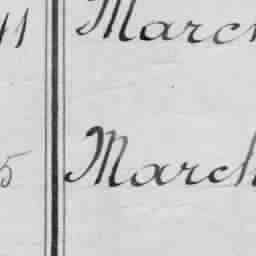 11 March
5 March